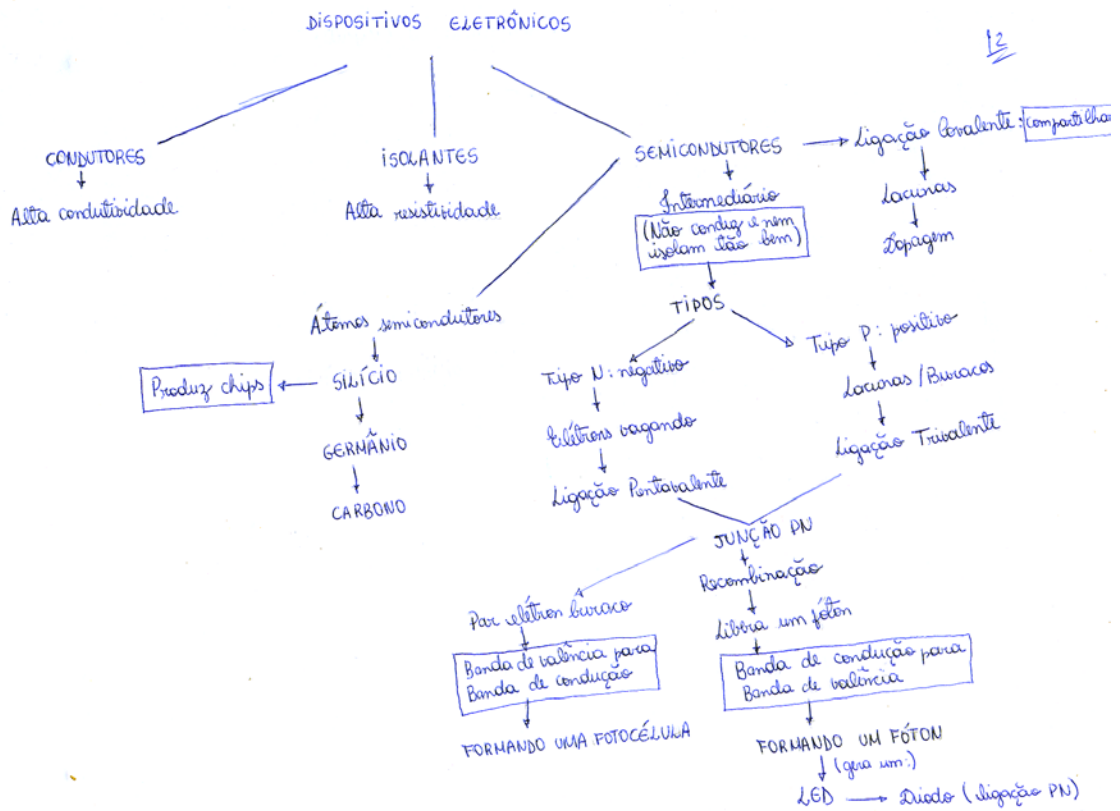 DISPOSITIVOS ELETRÔNICOS
12
CONDUTORES
Alta condutividade
ISOLANTES
Alta resistividade
SEMICONDUTORES
Ligação Covalente: compartilhar
Lacunas
Dopagem
Intermediário
(Não conduz e nem
isolam tão bem)
TIPOS
Átomos semicondutores
SILÍCIO
Produz chips
GERMÂNIO
CARBONO
Tipo N: negativo
Elétrons vagando
Ligação Pentavalente
Tipo P: positivo
Lacunas/Buracos
Ligação Trivalente
JUNÇÃO PN
Par elétron buraco
Banda de valência para
Banda de condução
FORMANDO UMA FOTOCÉLULA
Recombinação
Libera um fóton
Banda de condução para
Banda de valência
FORMANDO UM FÓTON
(gera um:)
LED
Diodo (ligação PN)